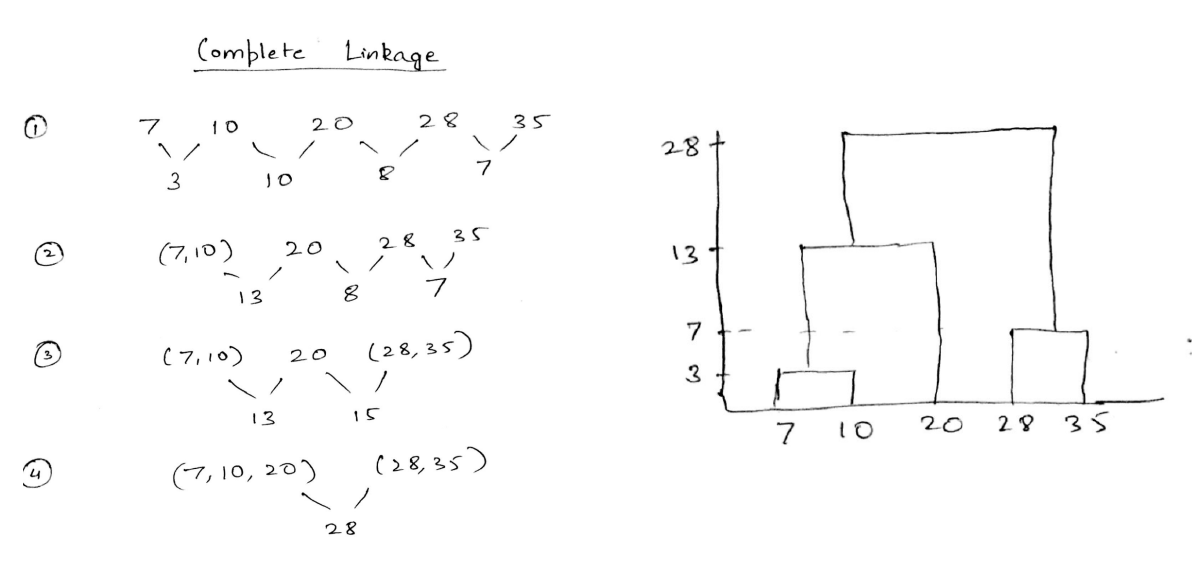 Complete Linkage
① 7 10 20 28 35
3 10 8 7
② (7,10) 20 28 35
13 8 7
③ (7,10) 20 (28,35)
13 15
④ (7, 10, 20) (28,35)
28
28
13
7
3
7 10 20 28 35